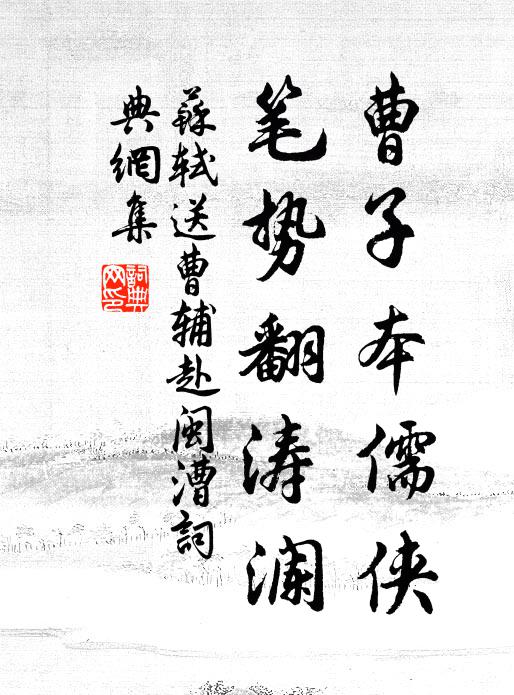 曹子本儒侠
笔势翻涛澜
蘇轼送曹辅赴闽漕詞
典網集
詞典网印